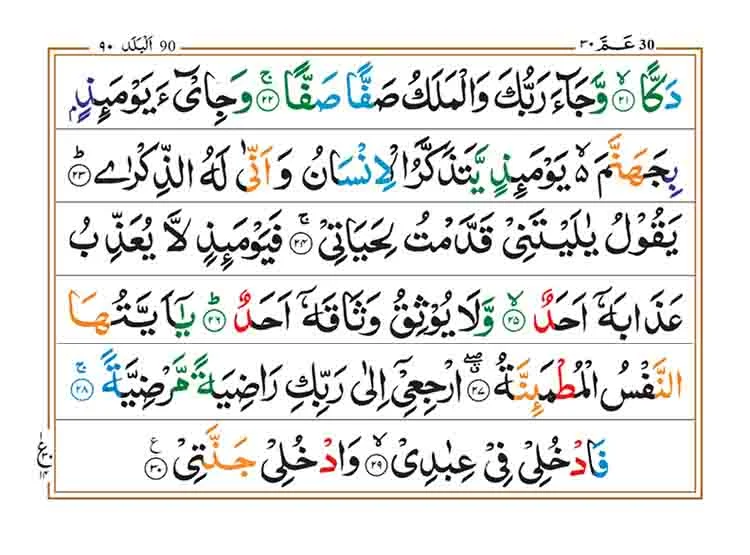 30 عَـمّ ٣٠
90 اَلْبَلَد ٩٠
دَكًّا ۙ‏﴿۲۱﴾ وَّجَآءَ رَبُّكَ وَالْمَلَكُ صَفًّا صَفًّا ۚ‏﴿۲۲﴾ وَجِایْٓءَ يَوْمَئِذٍۢ
بِجَهَنَّمَ ۙ يَوْمَئِذٍ يَّتَذَكَّرُ الْاِنْسَانُ وَاَنّٰى لَهُ الذِّكْرٰى ؕ‏﴿۲۳﴾
يَقُوْلُ يٰلَيْتَنِىْ قَدَّمْتُ لِحَيَاتِىْ ۚ‏﴿۲۴﴾ فَيَوْمَئِذٍ لَّا يُعَذِّبُ
عَذَابَهٗۤ اَحَدٌ ۙ‏﴿۲۵﴾ وَّلَا يُوْثِقُ وَثَاقَهٗۤ اَحَدٌ ؕ‏﴿۲۶﴾ يٰۤاَيَّتُهَا
النَّفْسُ الْمُطْمَئِنَّةُ ۖ‏﴿۲۷﴾ ارْجِعِىْۤ اِلٰى رَبِّكِ رَاضِيَةً مَّرْضِيَّةً ۚ‏﴿۲۸﴾
فَادْخُلِىْ فِىْ عِبٰدِىْ ۙ‏﴿۲۹﴾ وَادْخُلِىْ جَنَّتِىْ ‏﴿۳۰﴾ ع